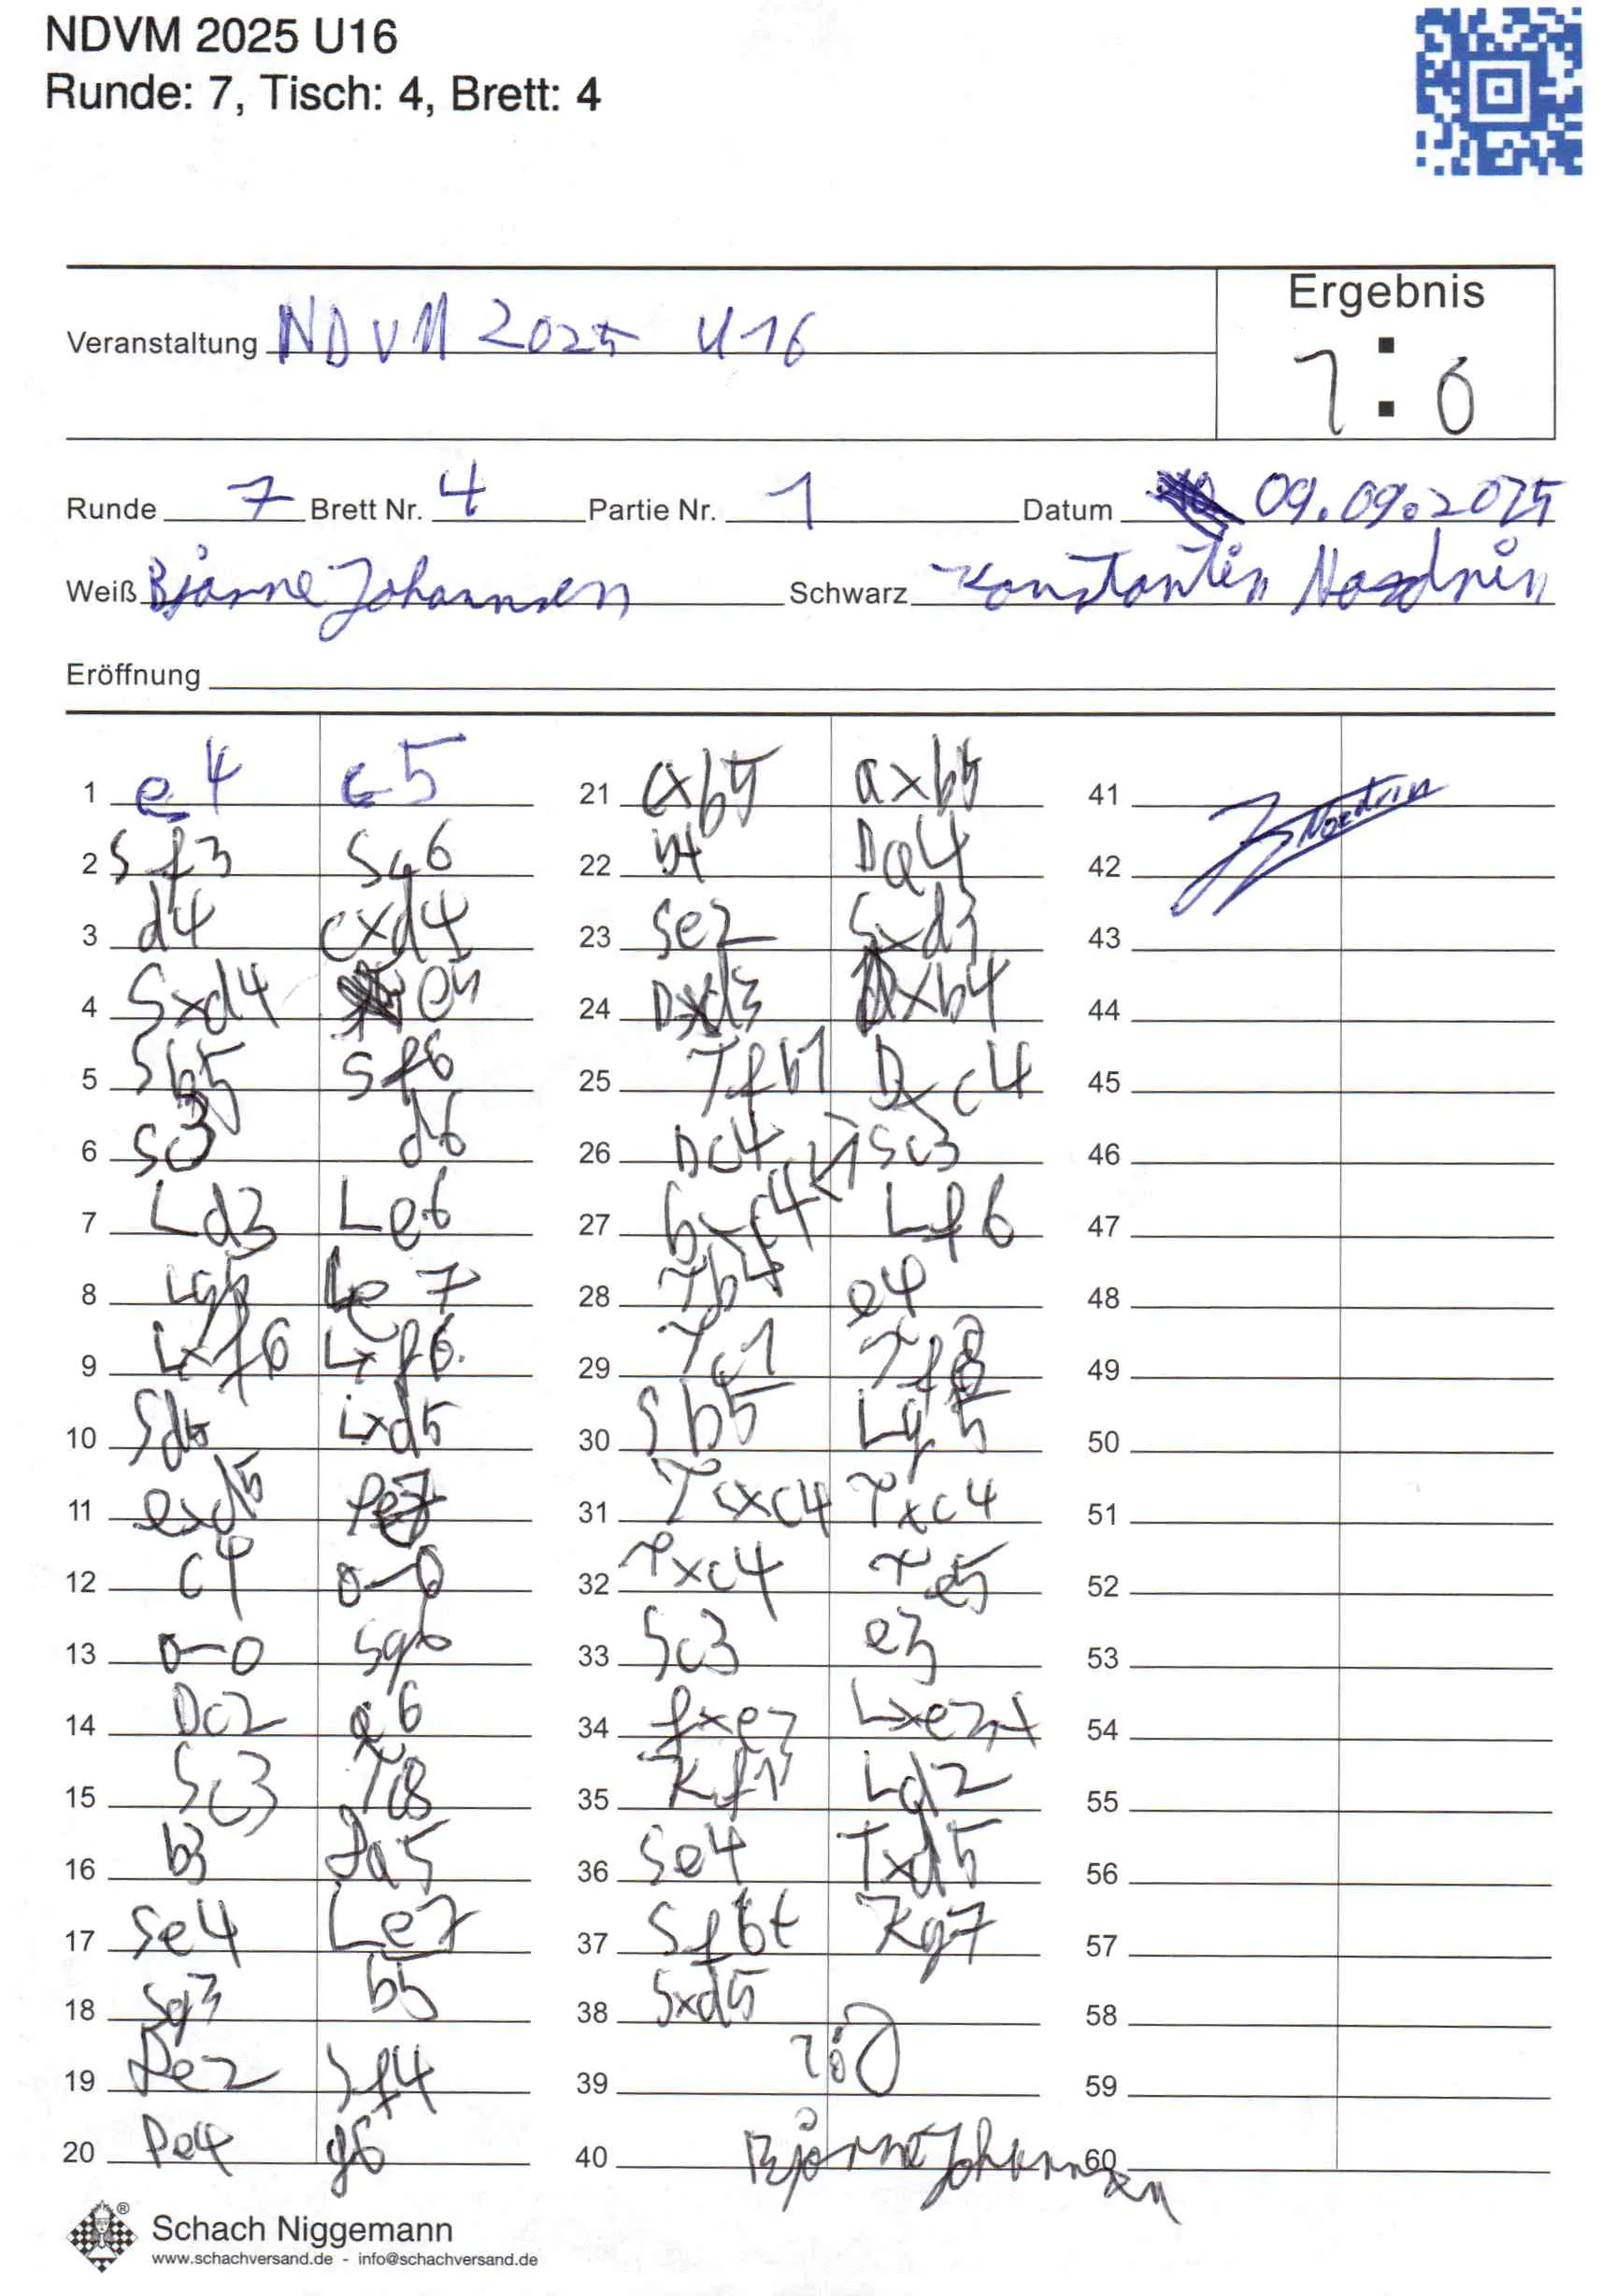 NDVM 2025 U16
Runde: 7, Tisch: 4, Brett: 4
Ergebnis
Veranstaltung NDVM 2025 U16
1 : 0
Runde 7 Brett Nr. 4 Partie Nr. 1 Datum 09.09.2025
Weiß Bjarne Johannsen Schwarz Konstantin
Eröffnung
1 e4 c5
2 Sf3 Sc6
3 d4 cxd4
4 Sxd4 e5
5 Sb5 Sf6
6 Sc3 d6
7 Ld3 Le6
8 Lg5 Le7
9 Lxf6 Lxf6.
10 Sd5 Lxd5
11 exd5 Se7
12 c4 0-0
13 0-0 Sg6
14 Dc2 a6
15 Sc3 Tc8
16 b3 Da5
17 Se4 Le7
18 Sg3 b5
19 De2 Sf4
20 De4 g6
21 cxb5 axb5
22 b4 Da4
23 Se2 Sxd3
24 Dxd3 Dxb4
25 Tfb1 Dc4
26 Dc4 Sc3
27 bxc4 Lf6
28 Tb4 e4
29 Tc1 Tf8
30 Sb5 Lg5
31 Tcxc4 Txc4
32 Txc4 Te5
33 Sc3 e3
34 fxe3 Lxe3+
35 Kf1 Ld2
36 Se4 Txd5
37 Sf6+ Kg7
38 Sxd5
39 1:0
40 Bjarne Johannsen
41
42
43
44
45
46
47
48
49
50
51
52
53
54
55
56
57
58
59
60
Schach Niggemann
www.schachversand.de - info@schachversand.de